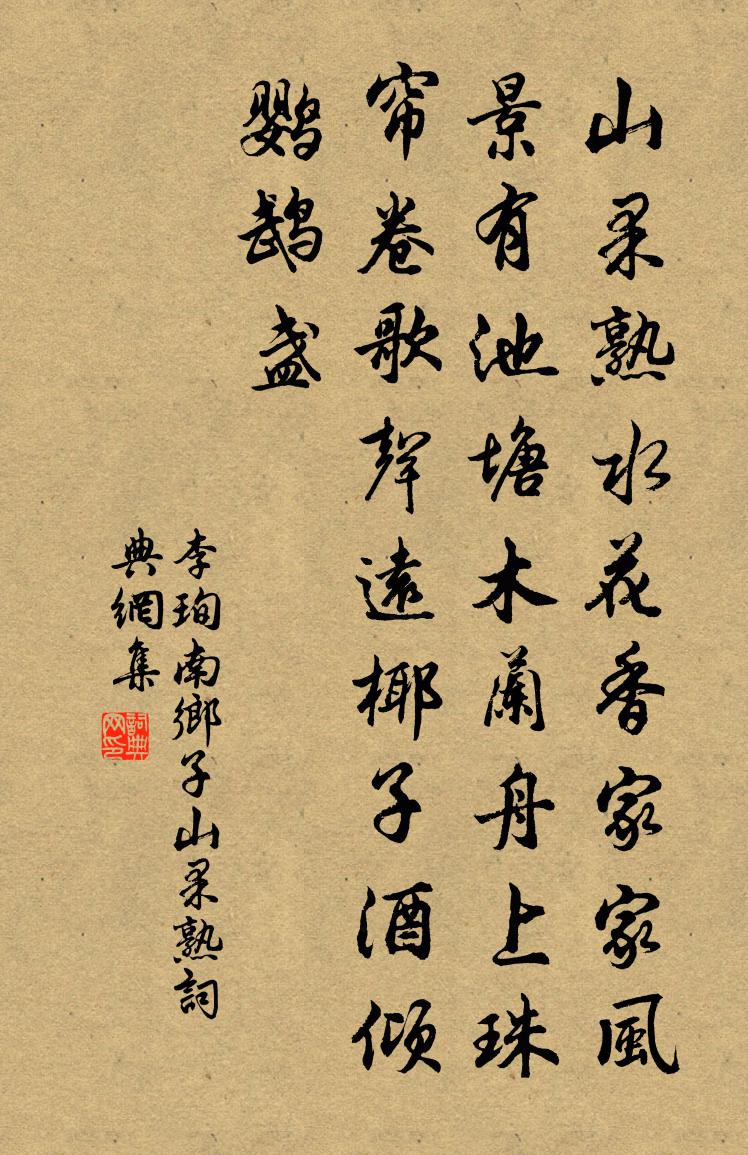 山果熟水花香家家風
景有池塘木蘭舟上珠
帘卷歌聲遠椰子酒傾
鸚鵡盞
李珣南鄉子山果熟詞
典網集
詞典
网印